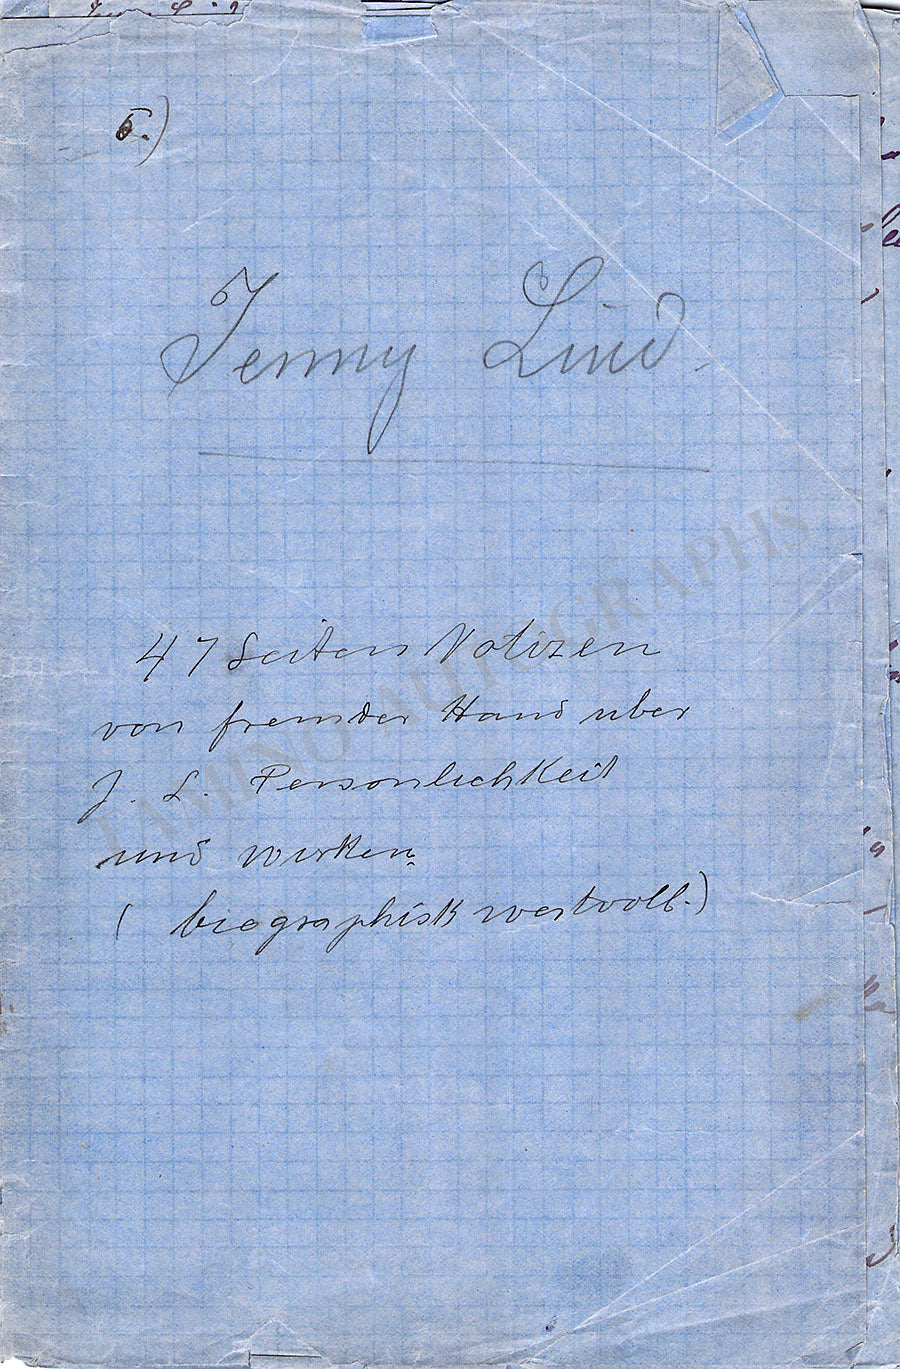 6.)
Jenny Lind.
47 Seiten Notizen
von fremder Hand uber
J. L. Persönlichkeit
und Wirken.
( biographisch wertvoll.)
TAMINO AUTOGRAPHS